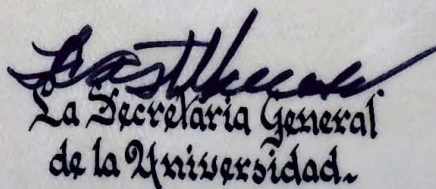 La Secretaria General
de la Universidad.